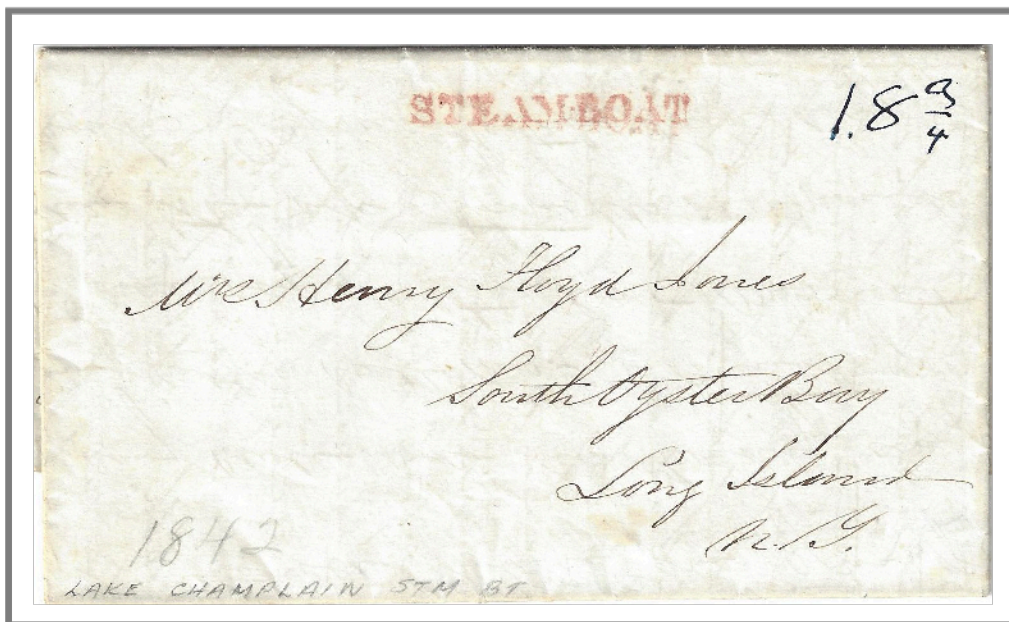 STEAMBOAT
18 3/4
Mrs Henry Floyd Jones
South Oyster Bay
Long Island
N.Y.
1842
LAKE CHAMPLAIN STM BT